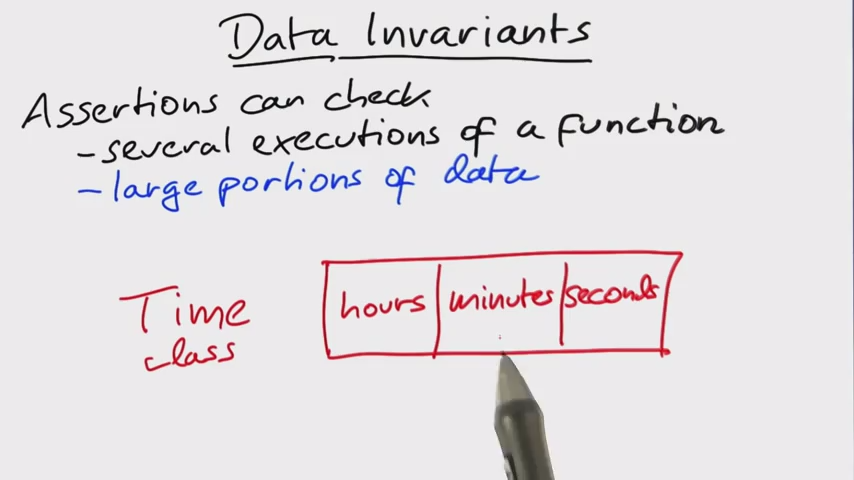 Data Invariants
Assertions can check
- several executions of a function
- large portions of data
Time
class
hours minutes seconds